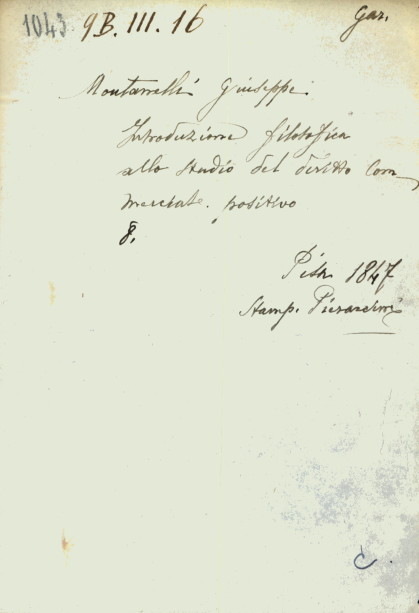 1043 9B.III.16 Gar.
Montanelli Giuseppe
Introduzione filosofica
allo studio del diritto Com
merciale positivo
8.
Pisa 1847
Stamp. Pieraccini
C.